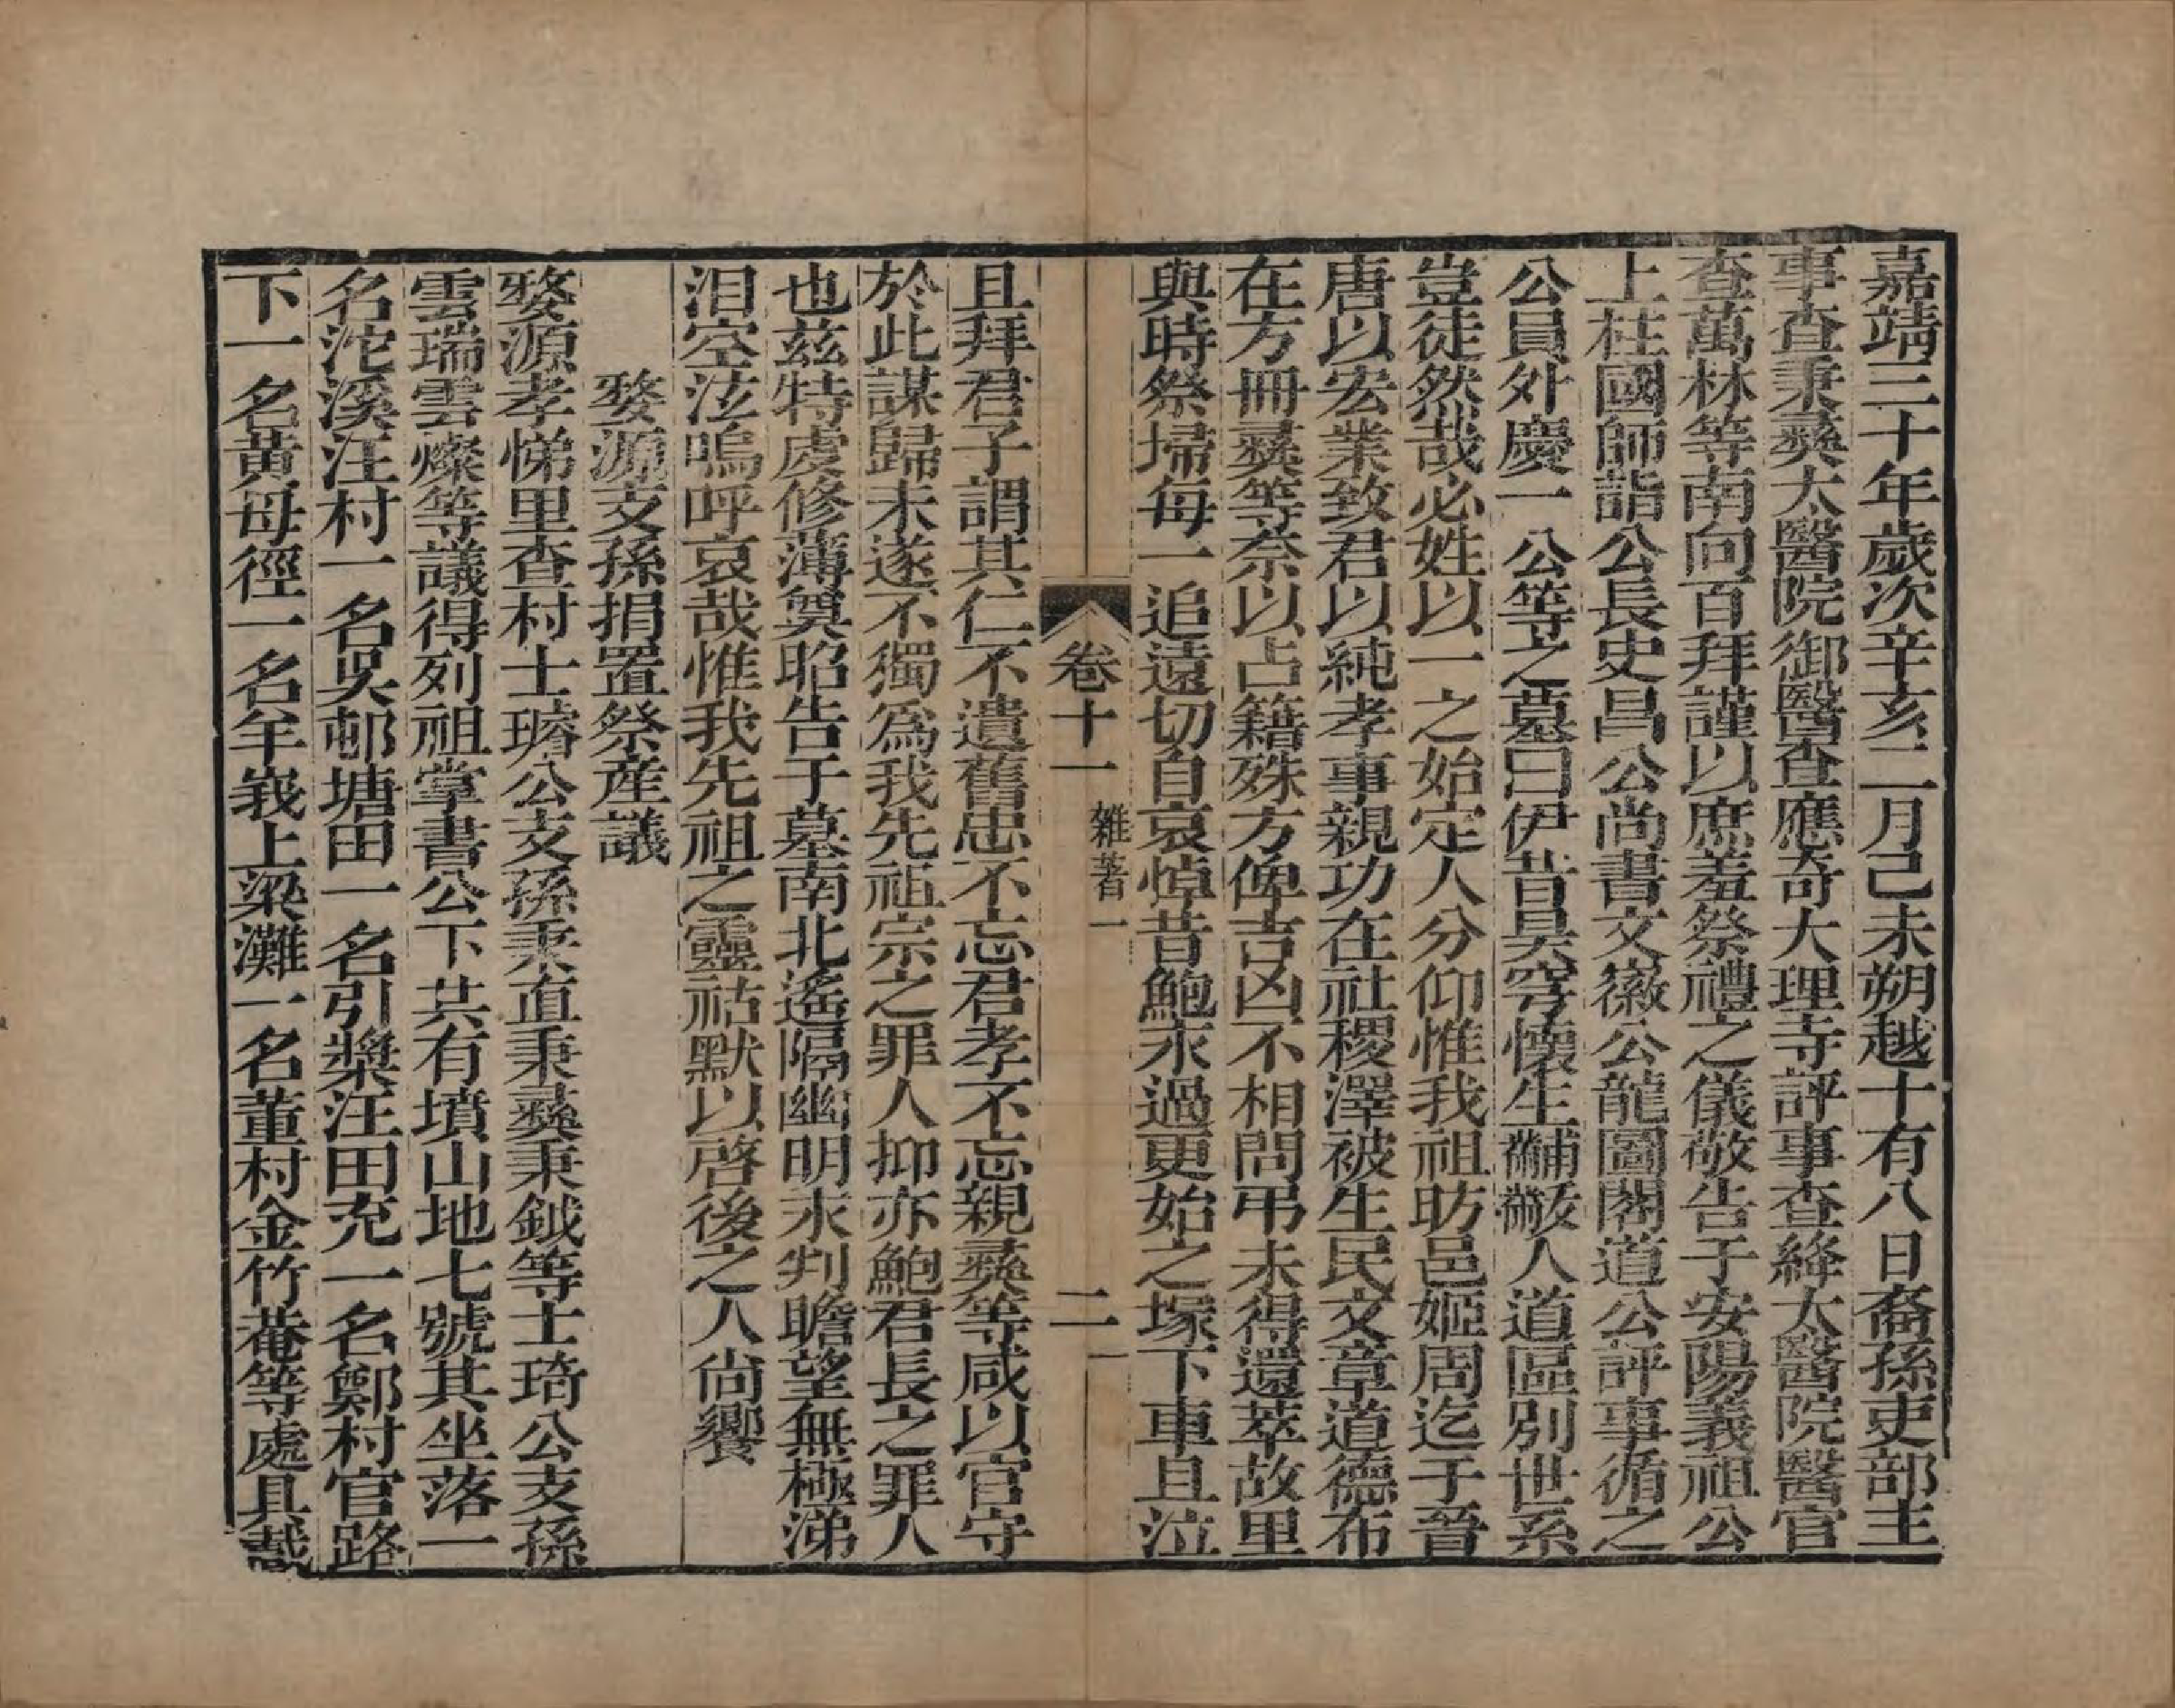 嘉靖三十年歲次辛亥二月己未朔越十有八日裔孫吏部主
事查秉彝太醫院御醫查應奇大理寺評事查絳太醫院醫官
查萬林等南向百拜謹以庶羞祭禮之儀敬告于安陽義祖公
上柱國師詣公長史昌公尚書文徽公龍圖閣道公評事循之
公員外慶一公等之墓曰伊昔昊穹懷生黼黻人道區別世系
豈徒然哉必姓以一之始定人分仰惟我祖昉邑姬周迄于晉
唐以宏業致君以純孝事親功在社稷澤被生民文章道德布
在方冊彝等奈以占籍殊方俾吉凶不相問弔未得還萃故里
與時祭埽每一追遠切自哀悼昔鮑永過更始之塚下車且泣
卷十一 雜著一 二
且拜君子謂其仁不遺舊忠不忘君孝不忘親彝等咸以官守
於此謀歸未遂不獨為我先祖宗之罪人抑亦鮑君長之罪人
也茲特虔修薄奠昭告于墓南北遙隔幽明永判瞻望無極涕
泪空泫嗚呼哀哉惟我先祖之靈祜默以啓後之人尚饗
婺源支孫捐置祭產議
婺源孝悌里查村士璿公支孫秉直秉彝秉鉞等士琦公支孫
雲瑞雲燦等議得列祖掌書公下共有墳山地七號其坐落一
名沱溪汪村一名吳邨塘田一名引槳汪田充一名鄭村官路
下一名黃母徑一名羊峩上梁灘一名董村金竹菴等處具載